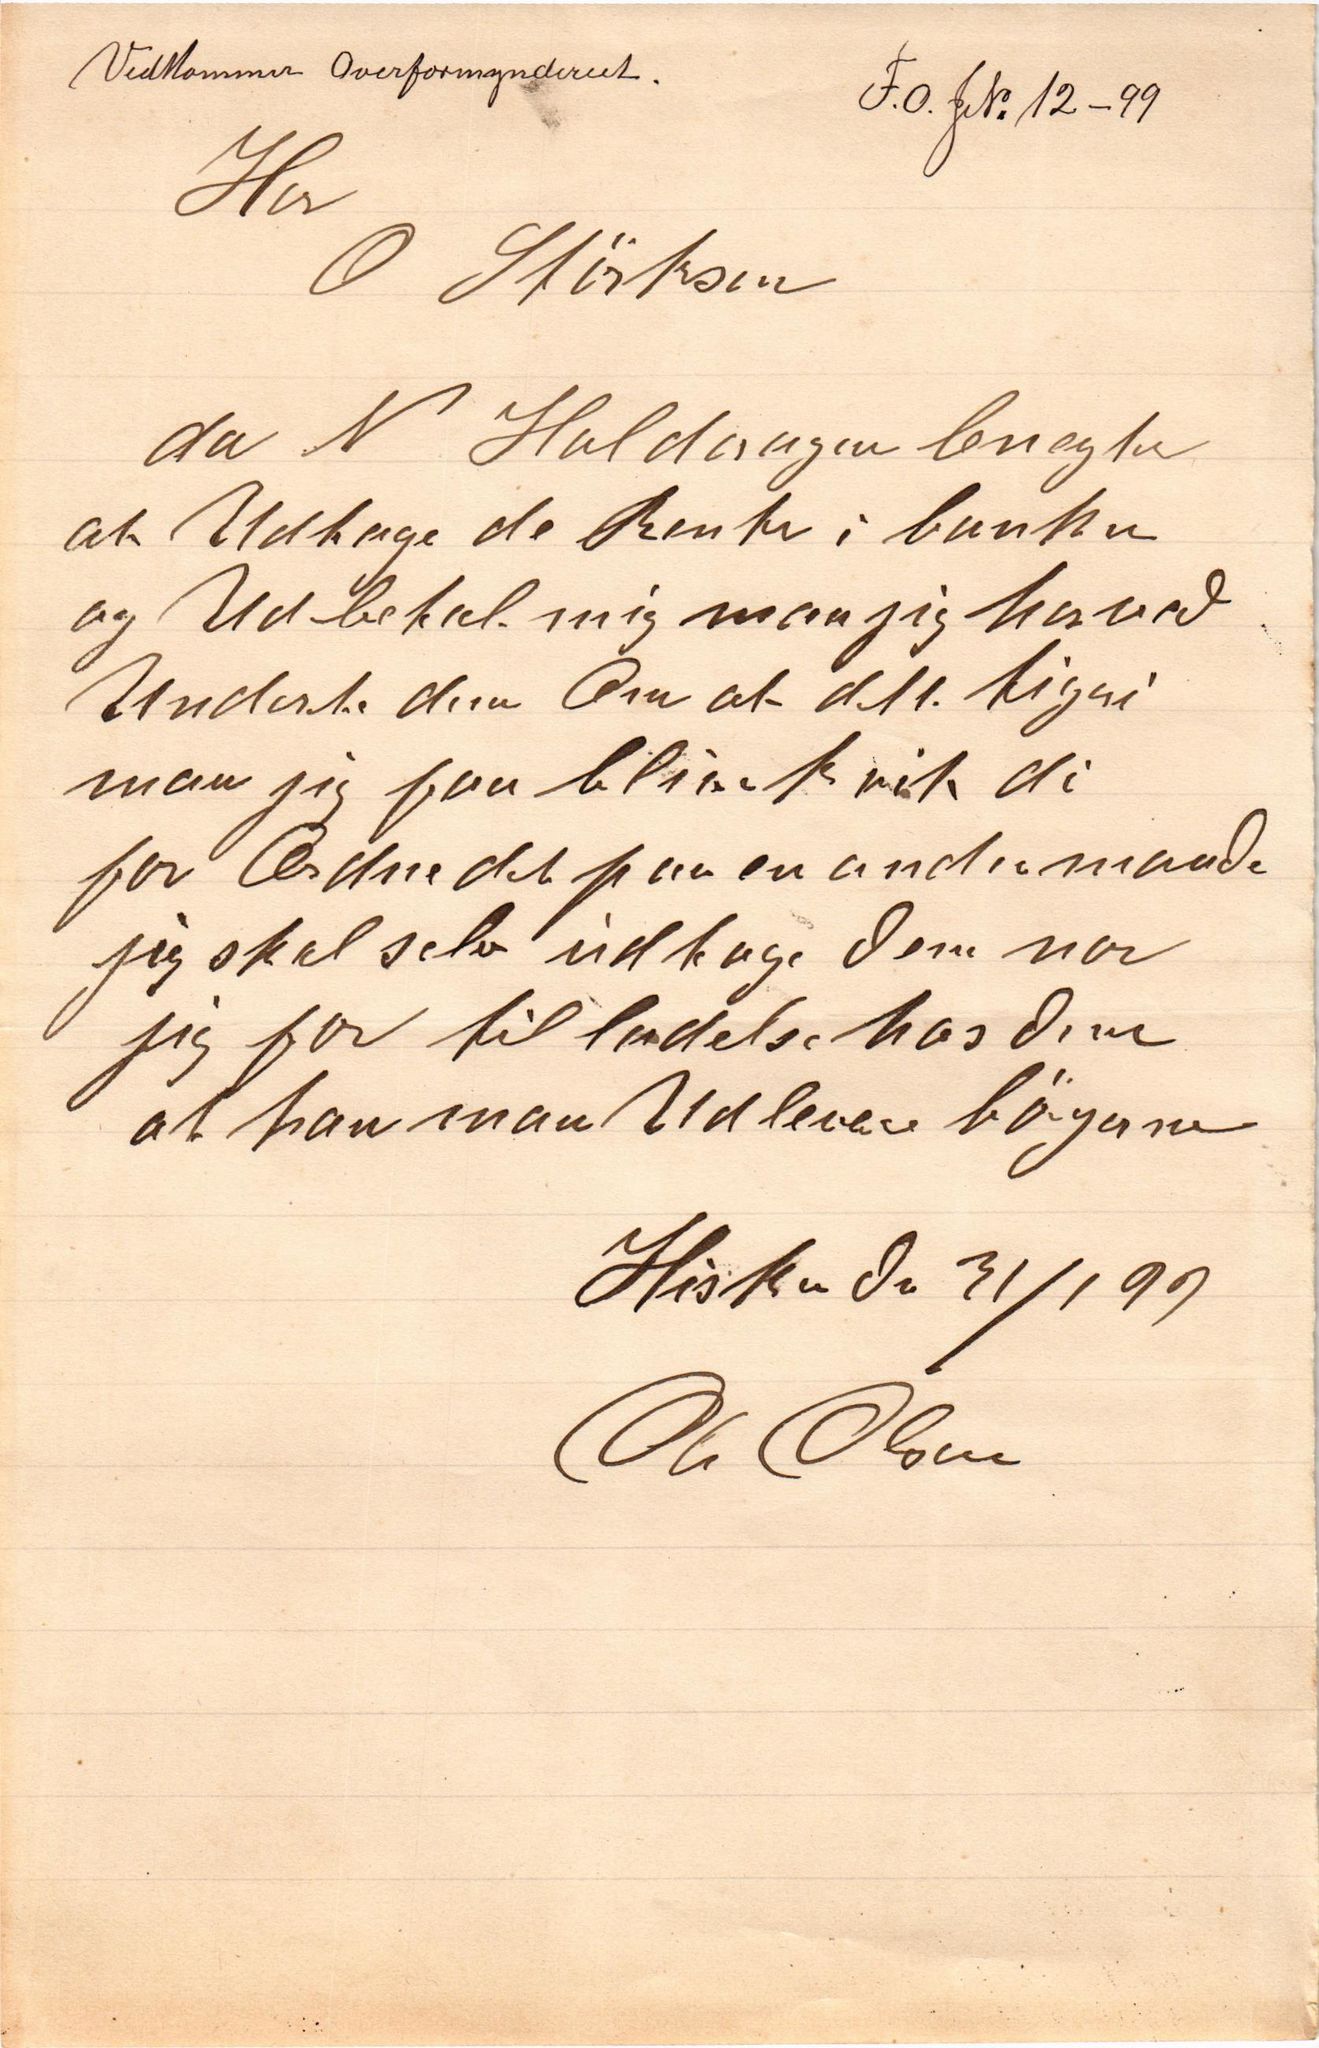 Vedkommer Overformynderiet.
F.O. J.No. 12-99
Her
O Störksen
da N Haldorsgen benegter
at Udtage de Renter i banken
og Udbetal mig maa jig herved
Underte dem Om at dette tigeri
maa jig faa blive kvit di
for Ordne det paa en anden maade
jig skal selv udtage dem nor
jig for tilladelse hos dem
at han maa Udlevere bögerne
Hisken dn 31/1 99
Ole Olsen